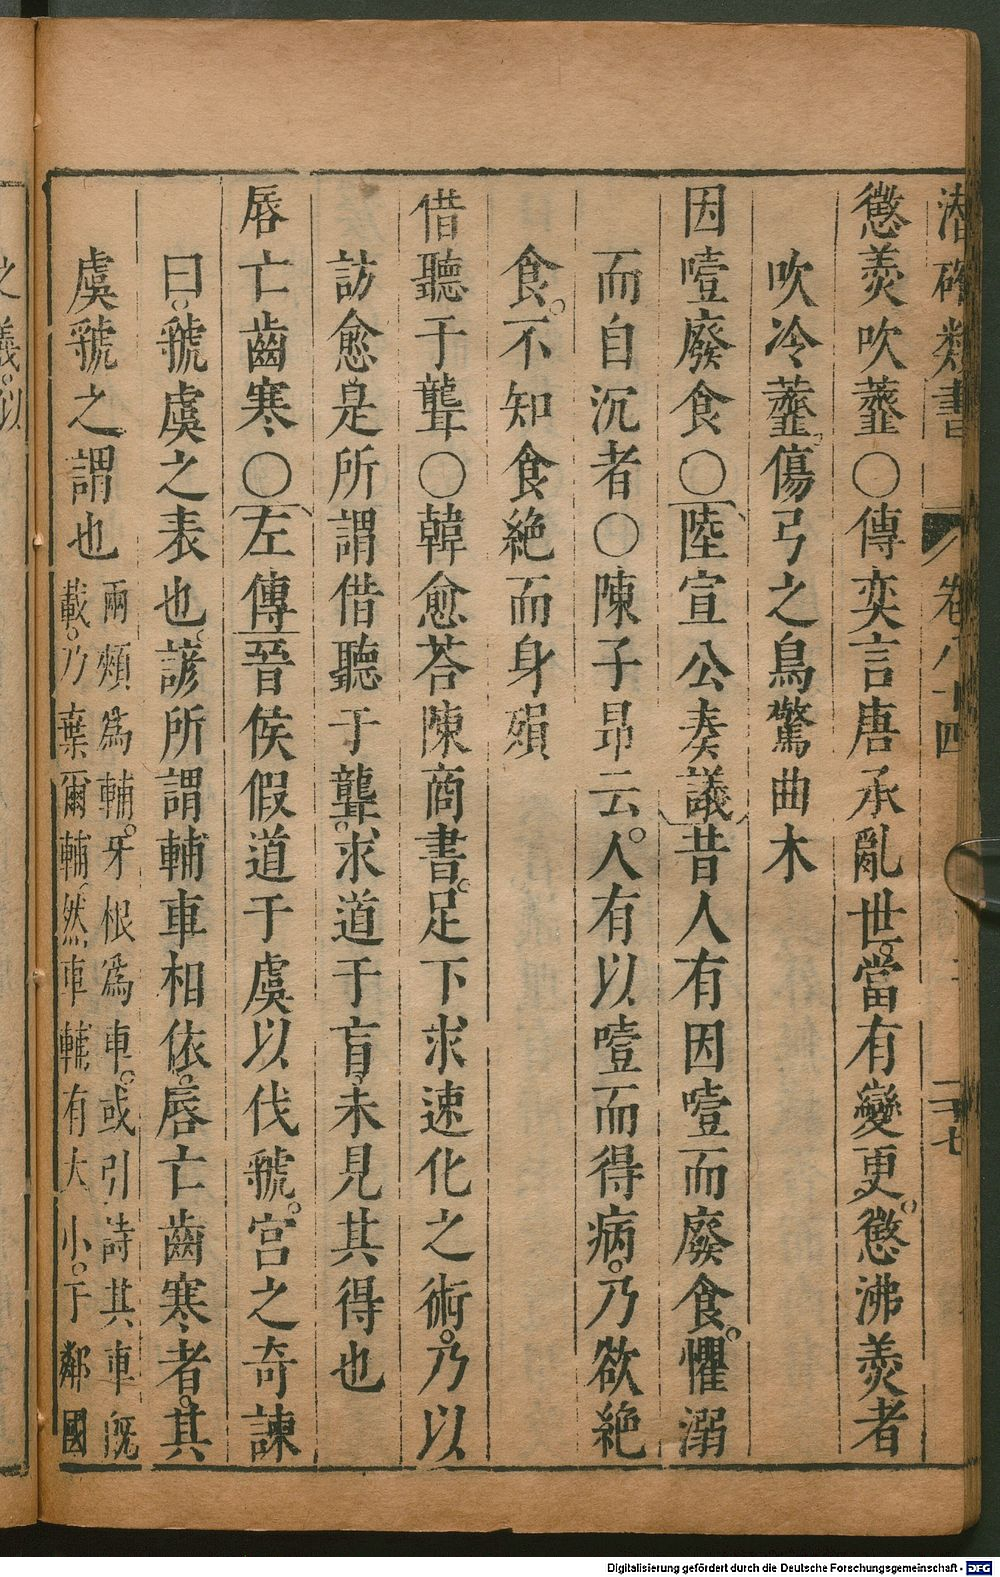 潛確類書 卷八十四 二十七
懲羹吹虀○傳奕言唐承亂世當有變更懲沸羹者
吹冷虀傷弓之鳥驚曲木
因噎廢食○陸宣公奏議昔人有因噎而廢食懼溺
而自沉者○陳子昻云人有以噎而得病乃欲絶
食不知食絶而身殞
借聽于聾○韓愈荅陳商書足下求速化之術乃以
訪愈是所謂借聽于聾求道于盲未見其得也
唇亡齒寒○左傳晉侯假道于虞以伐虢宮之奇諫
曰虢虞之表也諺所謂輔車相依唇亡齒寒者其
虞虢之謂也
兩頰為輔牙根爲車或引詩其車旣
載乃棄爾輔然車輔有大小于鄰國
之義以
Digitalisierung gefördert durch die Deutsche Forschungsgemeinschaft - DFG